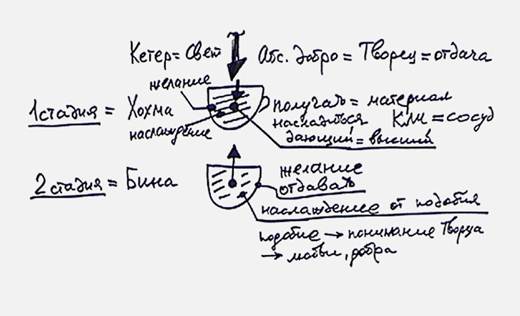 Кетер = Свет Абс. добро = Творец = отдача
желание
1 стадия = Хохма получать = материал
наслаждение насладиться Кли = сосуд
дающий = высший
2 стадия = Бина желание
отдавать
наслаждение от подобия
подобие → понимание Творца
→ любви, добра